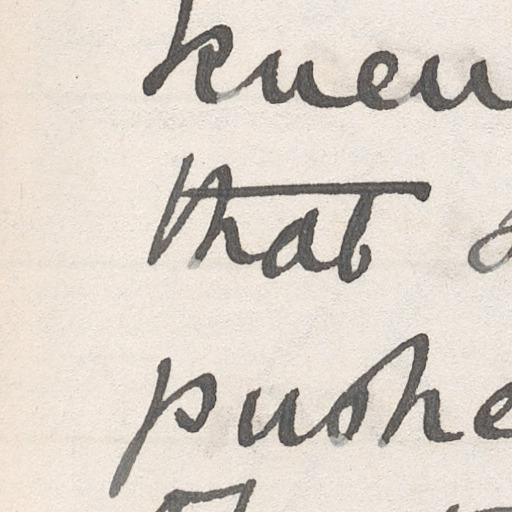 knew
that
pushe